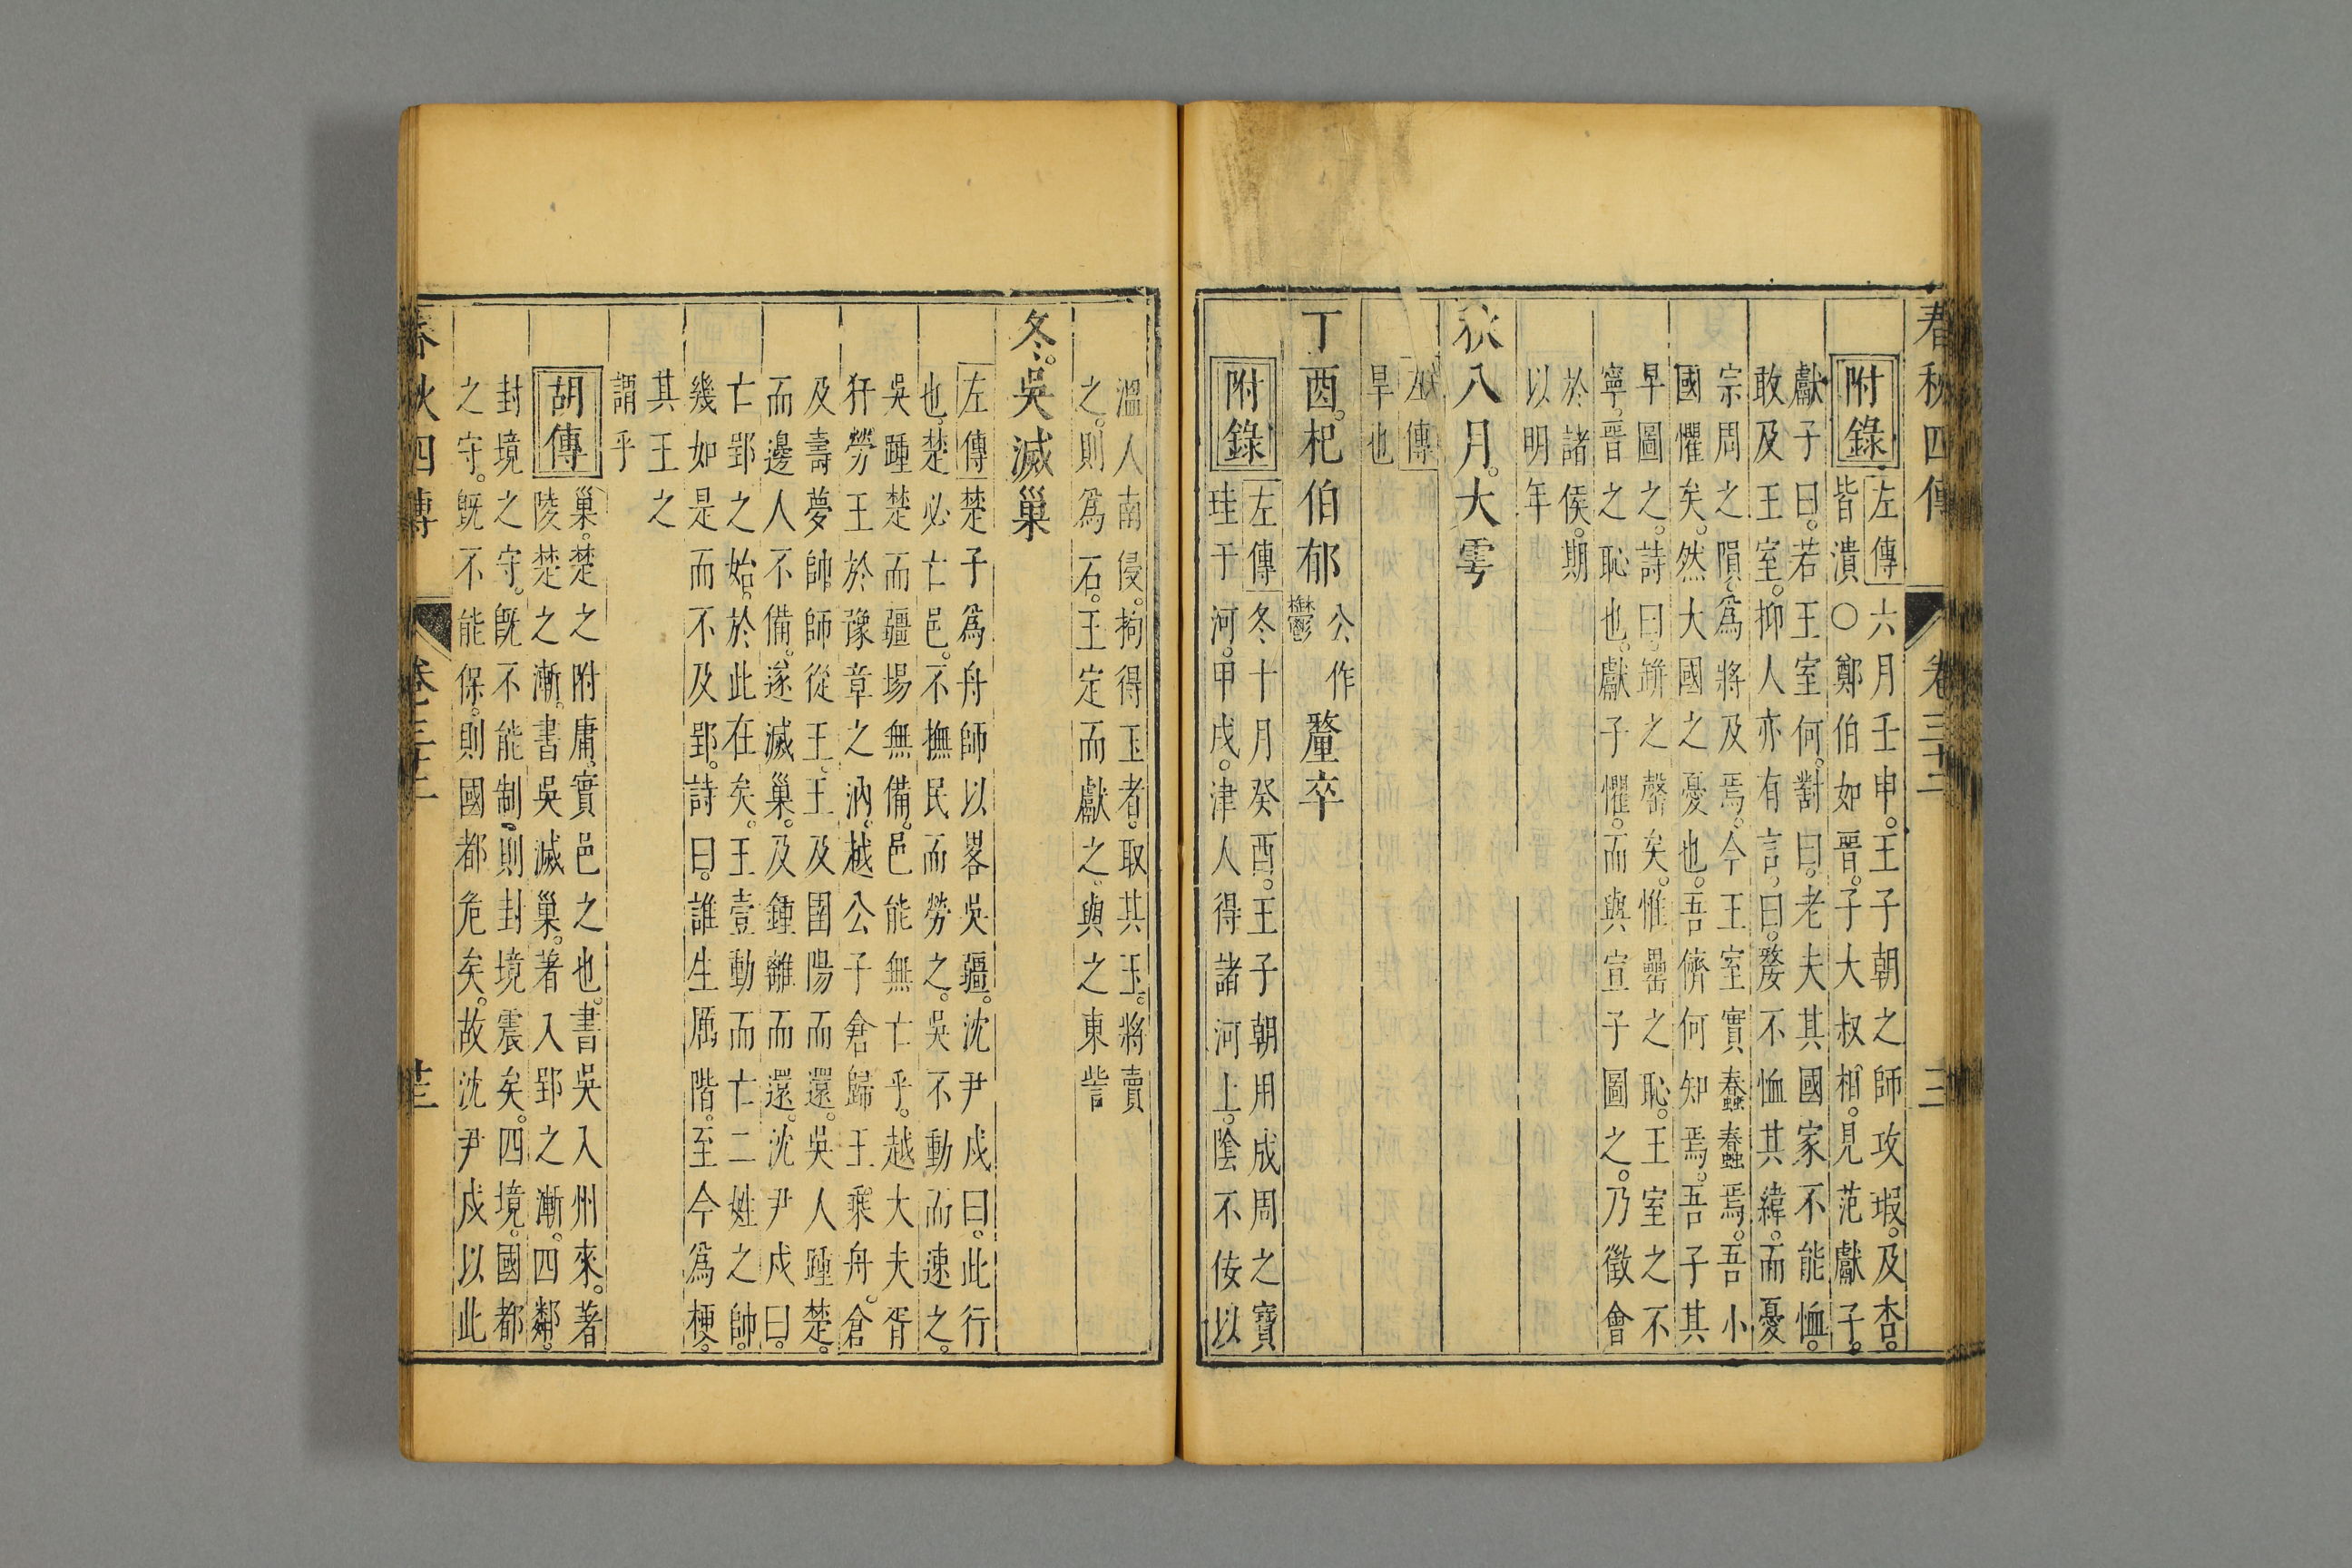 春秋四傳 卷三十二 三
附錄
左傳 六月壬申。王子朝之師攻瑕。及杏。
皆潰〇鄭伯如晉。子大叔相。見范獻子。
獻子曰。若王室何。對曰。老夫其國家不能恤。
敢及王室。抑人亦有言。曰。嫠不恤其緯。而憂
宗周之隕。爲將及焉。今王室實蠢蠢焉。吾小
國懼矣。然大國之憂也。吾儕何知焉。吾子其
早圖之。詩曰。缾之罄矣。惟罍之恥。王室之不
寧。晉之恥也。獻子懼。而與宣子圖之。乃徵會
於諸侯。期
以明年
秋八月。大雩
左傳
旱也
丁酉。杞伯郁
公作
鬱
釐卒
附錄
左傳 冬十月癸酉。王子朝用成周之寶
珪于河。甲戌。津人得諸河上。陰不佞以
溫人南侵。拘得玉者。取其玉。將賣
之。則爲石。王定而獻之。與之東訾
冬。吳滅巢
左傳 楚子爲舟師以畧吳疆。沈尹戍曰。此行
也。楚必亡邑。不撫民而勞之。吳不動而速之。
吳踵楚。而疆場無備。邑能無亡乎。越大夫胥
犴勞王於豫章之汭。越公子倉歸王乘舟。倉
及壽夢帥師從王。王及圉陽而還。吳人踵楚。
而邊人不備。遂滅巢。及鍾離而還。沈尹戍曰。
亡郢之始。於此在矣。王壹動而亡二姓之帥。
幾如是而不及郢。詩曰。誰生厲階。至今爲梗。
其王之
謂乎
胡傳
巢。楚之附庸。實邑之也。書吳入州來。著
陵楚之漸。書吳滅巢。著入郢之漸。四鄰。
封境之守。旣不能制。則封境震矣。四境。國都
之守。旣不能保。則國都危矣。故沈尹戍以此
春秋四傳 卷三十二